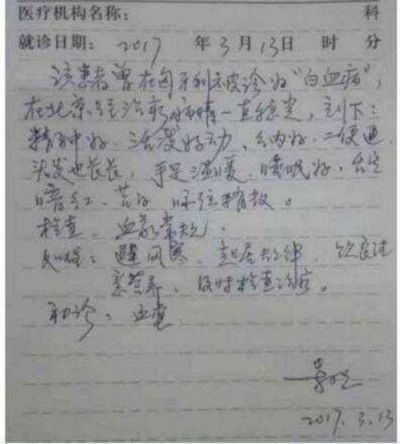 医疗机构名称： 科
就诊日期： 2017 年 3 月 13 日 时 分
该患者曾在匈牙利被诊为“白血病”，
在北京经治疗病情一直稳定，刻下：
精神好，活泼好动，纳好，二便通
头发也长长，手足温暖，睡眠好，舌
暗红，苔白，脉弦
检查：血象常规。
处理：避风寒，起居规律，饮食注
意营养，及时检查治疗。
初诊：血虚
2017.3.13